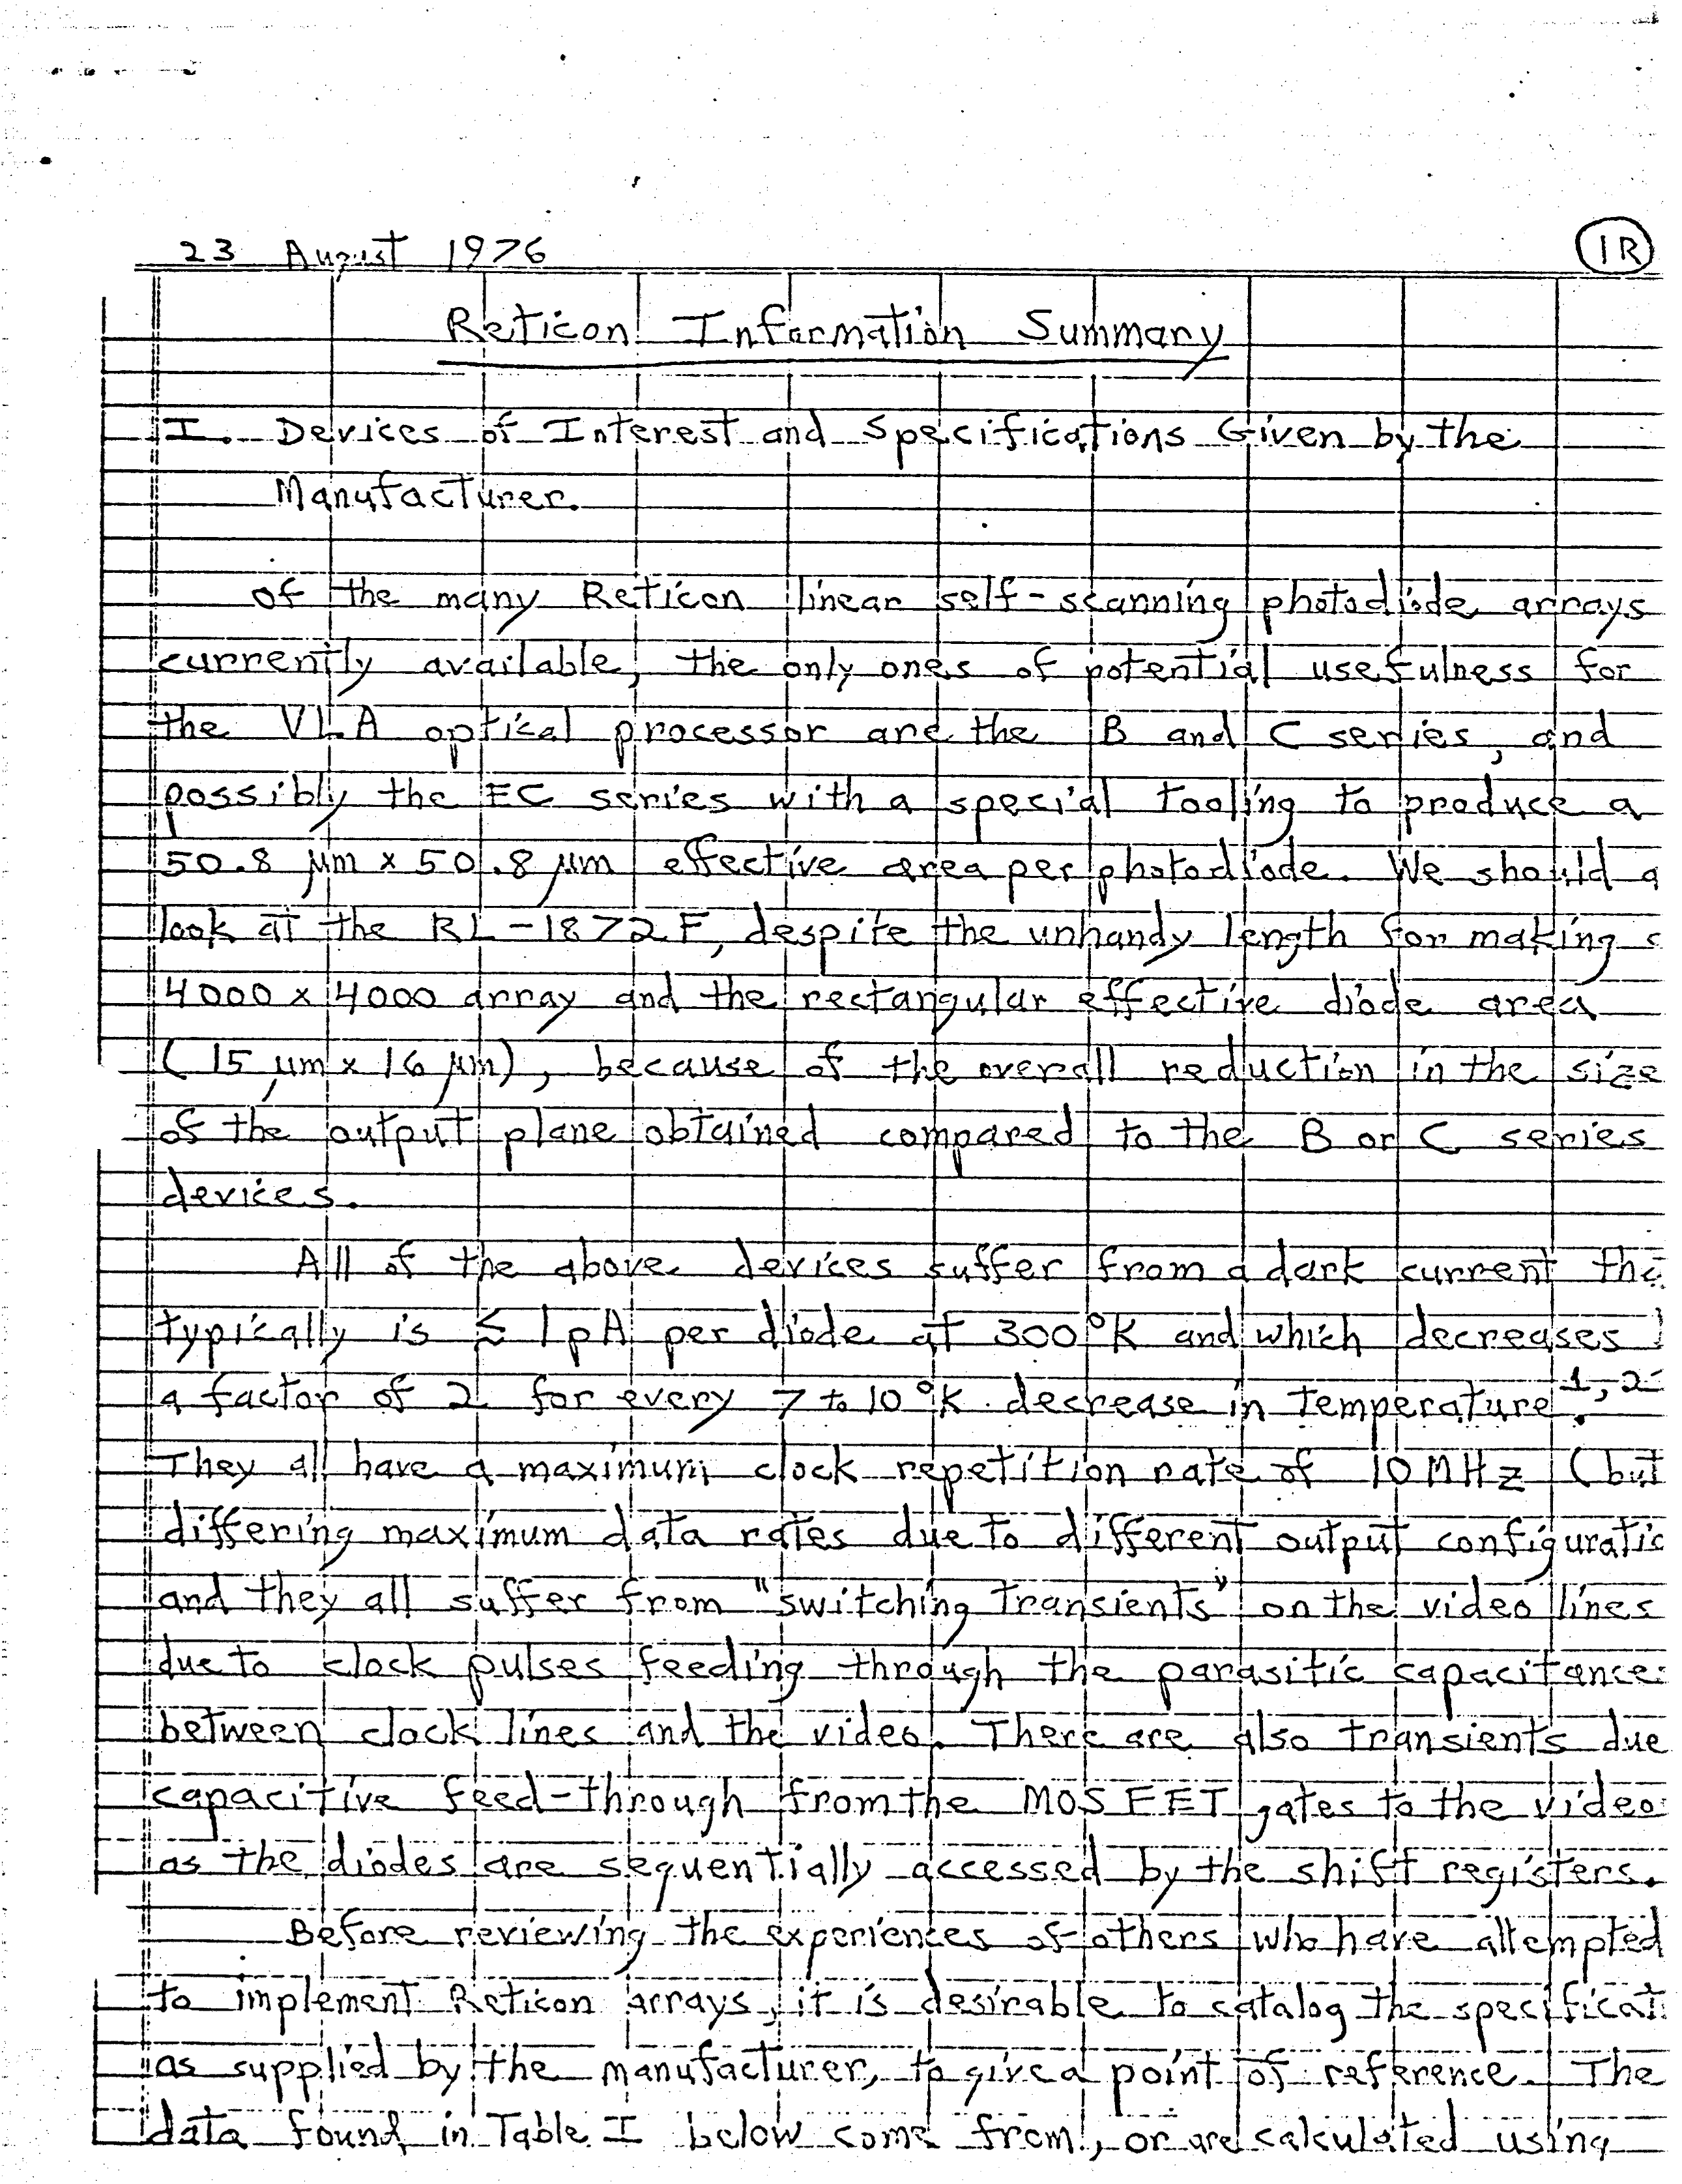 23 August 1976
1R
Reticon Information Summary
I. Devices of Interest and Specifications Given by the
Manufacturer.
of the many Reticon linear self-scanning photodiode arrays
currently available, the only ones of potential usefulness for
the VLA optical processor are the B and C series, and
possibly the EC series with a special tooling to produce a
50.8 μm x 50.8 μm effective area per photodiode. We should a
look at the RL-1872F, despite the unhandy length for making
4000 x 4000 array and the rectangular effective diode area
(15 μm x 16 μm), because of the overall reduction in the size
of the output plane obtained compared to the B or C series
devices.
All of the above devices suffer from a dark current
typically is ≲ 1 pA per diode at 300°K and which decreases
a factor of 2 for every 7 to 10 °K decrease in temperature.1,2
They all have a maximum clock repetition rate of 10 MHz (but
differing maximum data rates due to different output configuratio
and they all suffer from "switching transients" on the video lines
due to clock pulses feeding through the parasitic capacitance
between clock lines and the video. There are also transients due
capacitive feed-through from the MOSFET gates to the video
as the diodes are sequentially accessed by the shift registers.
Before reviewing the experiences of others who have attempted
to implement Reticon arrays, it is desirable to catalog the specificat
as supplied by the manufacturer, to give a point of reference. The
data found in Table I below come from, or are calculated using